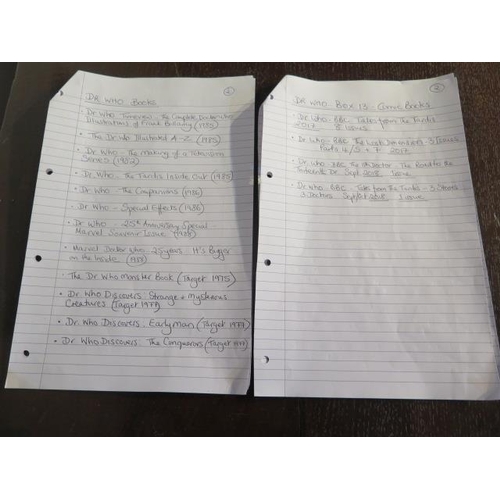 Dr Who Books
• Dr. Who Timeview - The Complete Doctor Who
Illustrations of Frank Bellamy (1985)
• The Dr Who Illustrated A-Z (1985)
• Dr. Who - The making of a Television
Series (1982)
• Dr. Who - The Tardis Inside Out (1985)
• Dr. Who - The Companions (1986)
• Dr Who - Special Effects (1986)
• Dr Who - 25th Anniversary Special
Marvel Souvenir Issue (1988)
• Marvel Doctor Who 25 years. It's Bigger
on the Inside (1988)
• The Dr. Who Monster Book (Target 1975)
• Dr. Who Discovers: Strange & Mysterious
Creatures (Target 1977)
• Dr. Who Discovers: Early Man (Target 1977)
• Dr. Who Discovers: The Conquerors (Target 1977)
Dr Who Box 13 - Comic Books
• Dr. Who: BBC. Tales from The Tardis
2017. 8 issues.
• Dr Who: BBC The Lost Dimension
Parts 2017
• Dr. Who BBC The Doctor. The Road to the
Thirteenth Dr. Sept 2018. issue
• Dr. Who - BBC - Tales from the Tardis -
Doctors Sept 2018 1 issue.